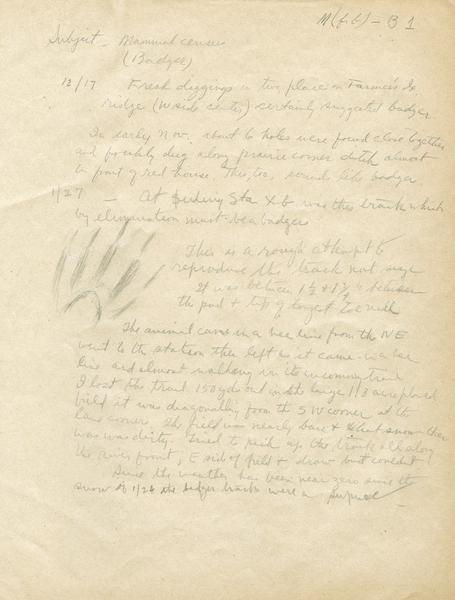 M(f6) - B 1
Subject - Mammal census
(Badger)
12/17 Fresh diggings in two places on Farmer's Is.
ridge (W side center) certainly suggested badger.
In early Nov. about 6 holes were found close together
and freshly dug along prairie corner ditch almost
in front of red house. This, too, sounds like badger.
1/27 - At feeding Sta X6 was this track which
by elimination must be a badger
This is a rough attempt to
reproduce the track not size
It was between 1 1/2 & 1 3/4 between
the pad & tip of longest toe nail
The animal came in a bee line from the NE
went to the station then left as it came in a bee
line and almost walking in its incoming trail
I lost the trail 150 yds out in the large 1/3 acre plowed
field it was diagonally from the SW corner at the
lane corner. The field was nearly bare & what snow there
was was drifty. Tried to pick up the track all along
the fence front, E side of field & draw but couldn't
Since the weather has been near zero since the
snow of 1/26 the badger tracks were a surprise